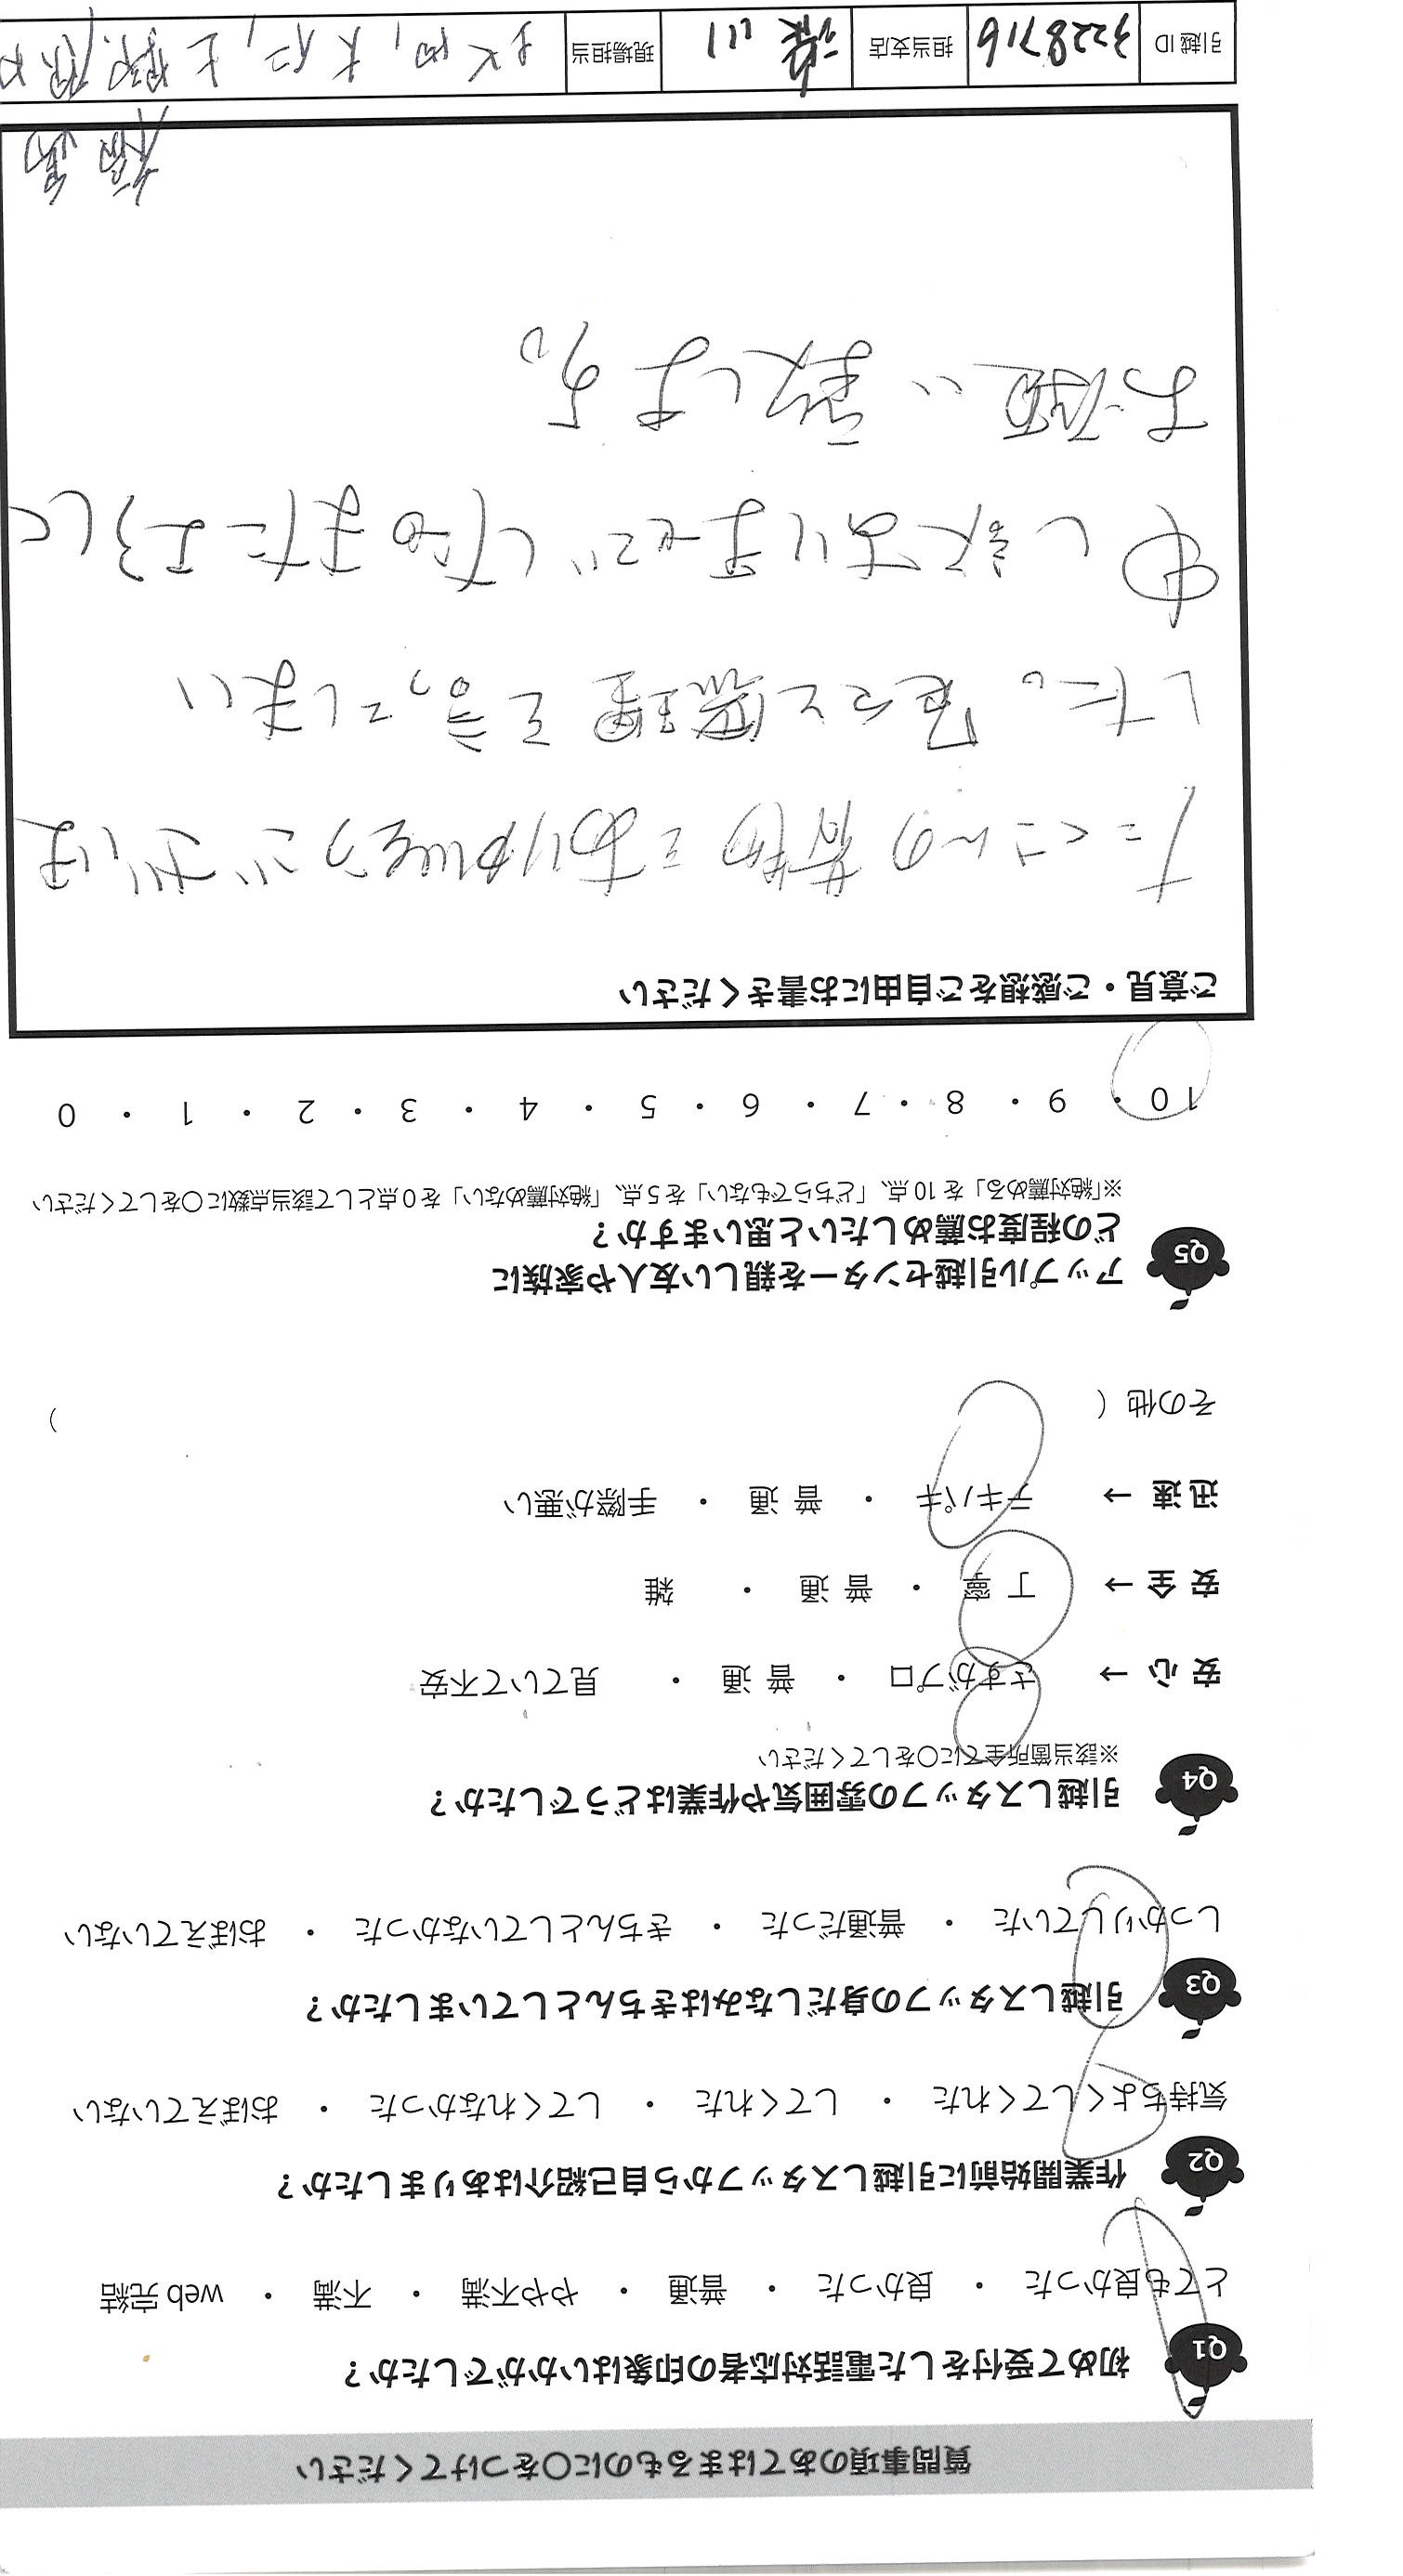 質問事項のあてはまるものに〇をつけてください
Q1 初めて受付をした電話対応者の印象はいかがでしたか？
とても良かった ・ 良かった ・ 普通 ・ やや不満 ・ 不満 ・ web 完結
Q2 作業開始前に引越しスタッフから自己紹介はありましたか？
気持ちよくしてくれた ・ してくれた ・ してくれなかった ・ おぼえていない
Q3 引越しスタッフの身だしなみはきちんとしていましたか？
しっかりしていた ・ 普通だった ・ きちんとしていなかった ・ おぼえていない
Q4 引越しスタッフの雰囲気や作業はどうでしたか？
※該当箇所全てに〇をしてください
安 心 → さすがプロ ・ 普 通 ・ 見ていて不安
安 全 → 丁 寧 ・ 普 通 ・ 雑
迅 速 → テキパキ ・ 普 通 ・ 手際が悪い
その他（ ）
Q5 アップル引越センターを親しい友人や家族に
どの程度お薦めしたいと思いますか？
※「絶対薦める」を 10 点、「どちらでもない」を 5 点、「絶対薦めない」を 0 点として該当点数に〇をしてください
10 ・ 9 ・ 8 ・ 7 ・ 6 ・ 5 ・ 4 ・ 3 ・ 2 ・ 1 ・ 0
ご意見・ご感想をご自由にお書きください
たくさんの荷物をありがとうございま
した。色々と無理を言ってしまい
申し訳ありませんでした。またよろしく
お願い致します。
引越 ID 3228716 担当支店 川 現場担当